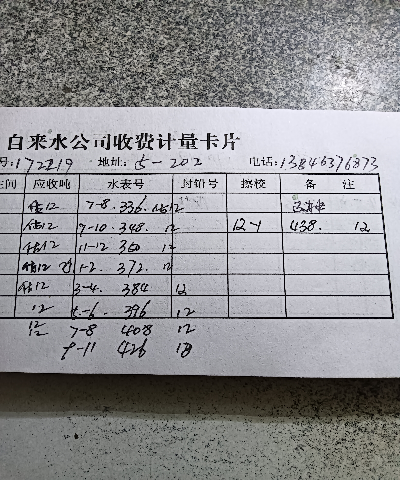 自来水公司收费计量卡片
号:172219 地址: 5-202 电话:13846376873
间 应收吨 水表号 封铅号 擦校 备 注
估12 7-8. 336. 估12
估12 9-10. 348. 12 12-1 438. 12
估12 11-12 360 12
估12 1-2. 372. 12
估12 3-4. 384 12
12 5-6. 396 12
12 7-8 408 12
9-11 426 18